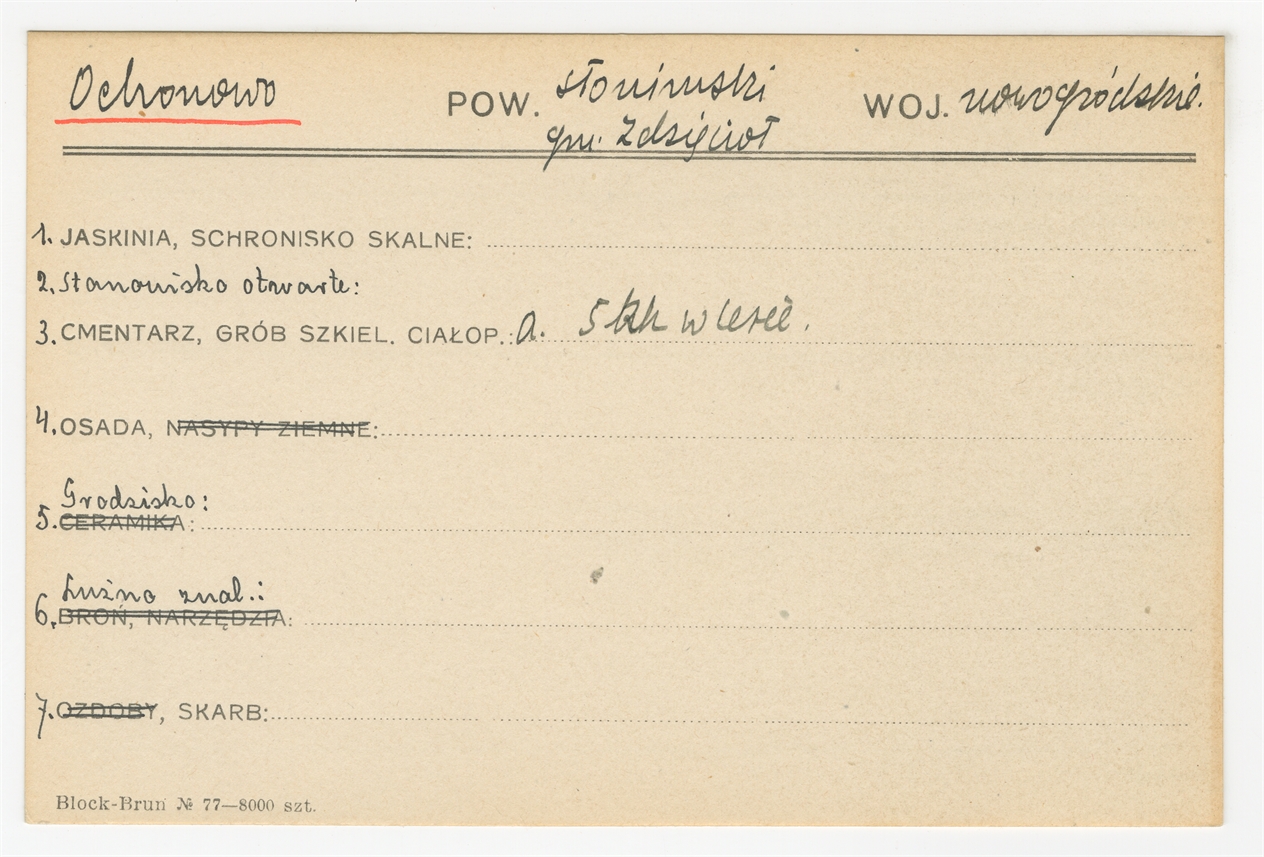 Ochonowo POW. słonimski WOJ. nowogródzkie.
gm. Zdzięcioł
1. JASKINIA, SCHRONISKO SKALNE:
2. Stanowisko otwarte:
3. CMENTARZ, GRÓB SZKIEL. CIAŁOP.: a. 5 kh w lesie.
4. OSADA, NASYPY ZIEMNE:
Grodzisko:
5. CERAMIKA:
Luźno znal.:
6. BROŃ, NARZĘDZIA:
7. OZDOBY, SKARB:
Block-Brun № 77—8000 szt.